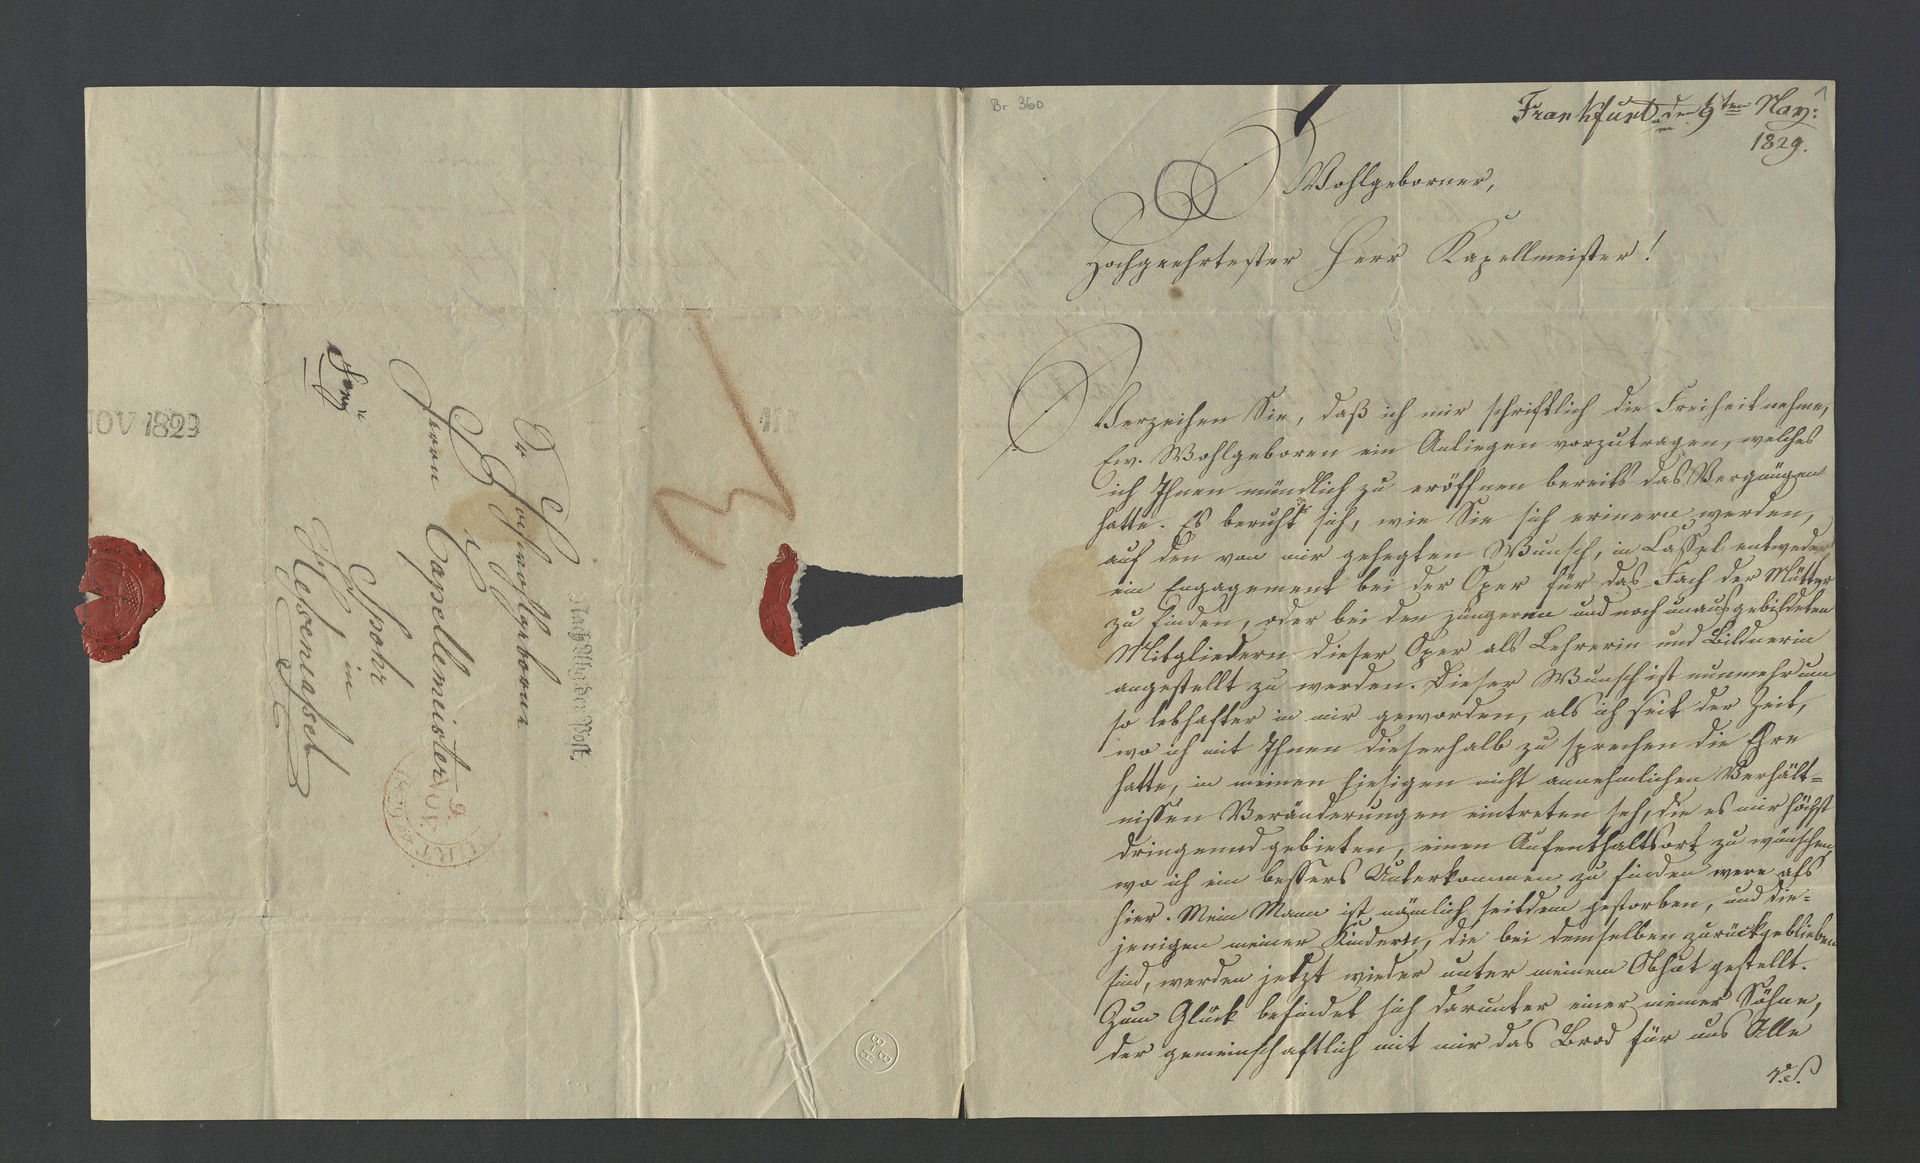 NOV 1829
franco
Sr Hochwohlgeboren
Herrn Capellmeister
Spohr
in
Hessencassel
Nach Abg. der Post.
9
NOV
Br 360
1
Frankfurt am den 9ten Nov:
1829.
Wohlgeborner,
Hochgeehrtester Herr Kapellmeister!
Verzeihen Sie, daß ich mir schriftlich die Freiheit nehme,
Ew. Wohlgeboren ein Anliegen vorzutragen, welches
ich Ihnen mündlich zu eröffnen bereits das Vergnügen
hatte. Es beruht sich, wie Sie sich erinern werden,
auf den von mir gehegten Wunsch, in Cassel entweder
ein Engagement bei der Oper für das Fach der Mütter
zu finden, oder bei den jüngeren und noch unausgebildeten
Mitgliedern dieser Oper als Lehrerin und Bildnerin
angestellt zu werden. Dieser Wunsch ist nunmehr um
so lebhafter in mir geworden, als ich seit der Zeit,
wo ich mit Ihnen dieserhalb zu sprechen die Ehre
hatte, in meinen hiesigen nicht annehmlichen Verhält=
nissen Veränderungen eintreten seh, die es mir höchst
dringennd gebieten, einen Aufenthaltsort zu wünschen,
wo ich ein bessers Unterkommen zu finden were als
hier. Mein Mann ist nämlich seitdem gestorben, und die=
jenigen meiner Kindern, die bei demselben zurückgeblieben
sind, werden jetzt wieder unter meinem Obhut gestellt.
Zum Glück befindet sich darunter einer meiner Söhne,
der gemeinschaftlich mit mir das Brod für uns Alle